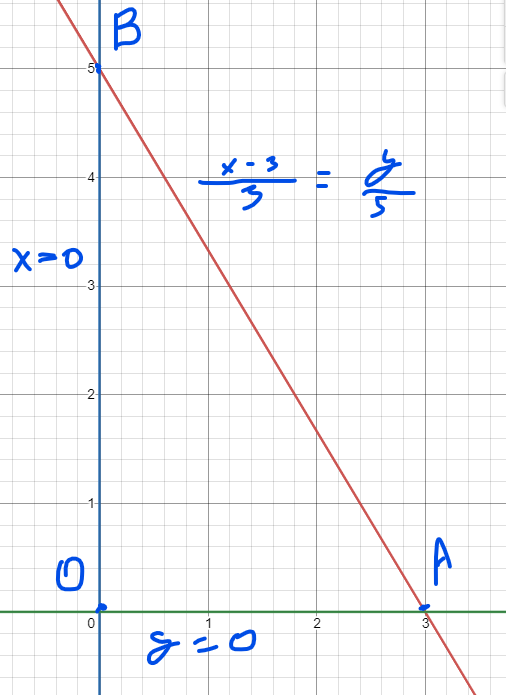 B
5
4
x - 3 / 3 = y / 5
x = 0
3
2
1
O
A
0 1 2 3
y = 0